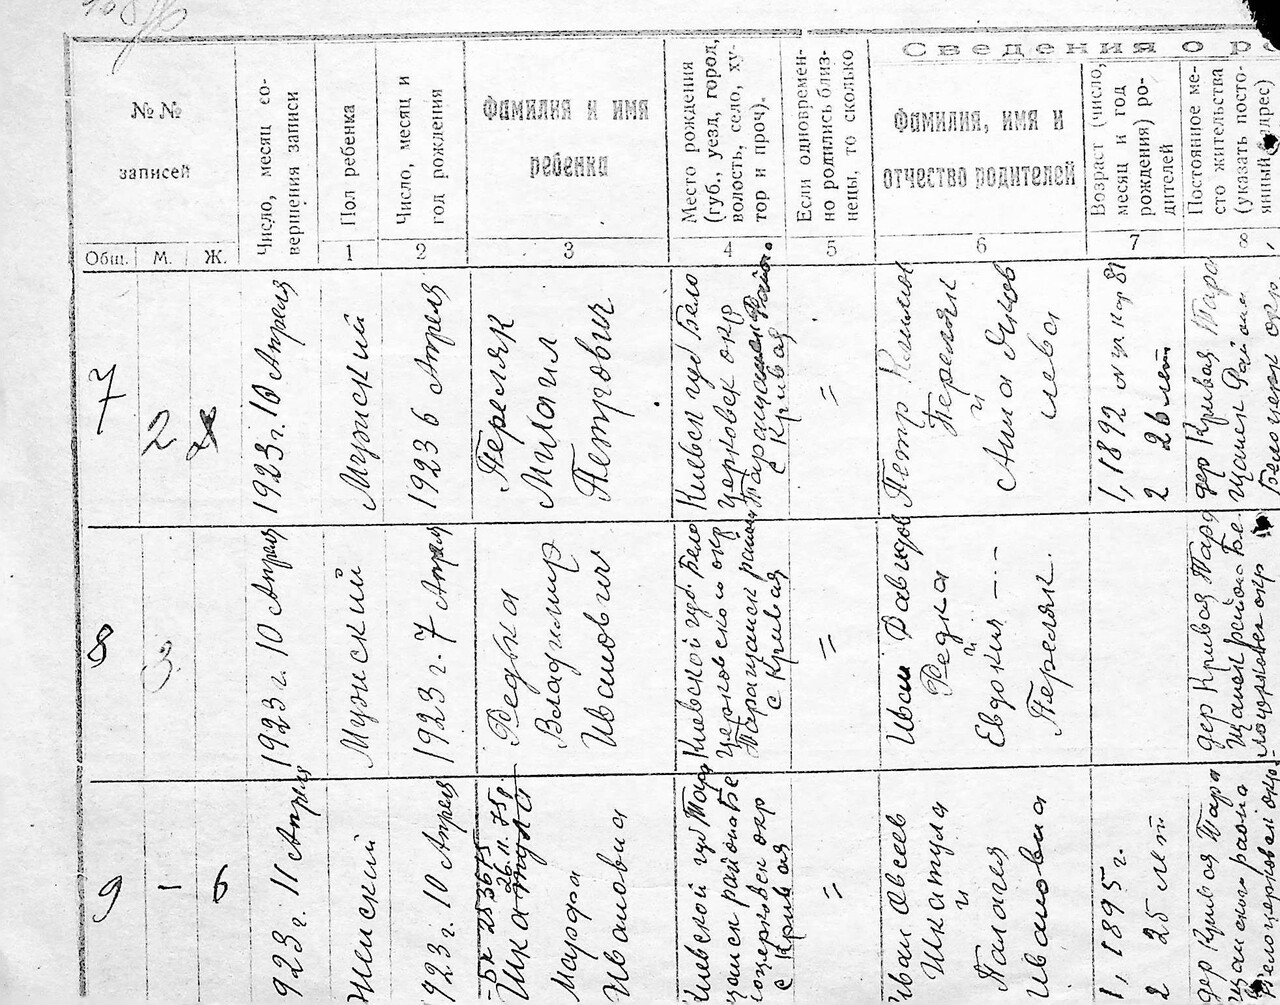 Сведения о ре
№№
записей
Общ. М. Ж.
Число, месяц со-
вершения записи
Пол ребенка
1
Число, месяц и
год рождения
2
Фамилия и имя
ребенка
3
Место рождения
(губ., уезд, город,
волость, село, ху-
тор и проч).
4
Если одновремен-
но родились близ-
нецы, то сколько
5
Фамилия, имя и
отчество родителей
6
Возраст (число,
месяц и год
рождения) ро-
дителей
7
Постоянное ме-
сто жительства
(указать посто-
янный адрес)
8
7
2
1923 г. 10 Апреля
Мужский
1923 6 Апреля
Переляк
Михаил
Петрович
Киевск губ Бело
церковск окр
Таращанск Район
с Кривая
=
Петр Климов
Переляк
и
Анна Яков
лева
1, 1892
2 26 лет
дер Кривая Тара
щанск Района
Белоцерк окр
8
3
1923 г. 10 Апреля
Мужский
1923 г. 7 Апреля
Редька
Владимир
Иванович
Киевской губ. Бело
церковского окр
Таращанск район
с Кривая
=
Иван Давидов
Редка
и
Евдокия —
Переляк
дер Кривая Тара
щанск района Бе-
лоцерковск окр
9
-
6
923 г. 11 Апреля
Женский
923 г. 10 Апреля
Шкатула
Марфа
Ивановна
Киевской губ Тара
щанск района Бе
лоцерковск окр
с Кривая
=
Иван Овсеев
Шкатула
и
Палагея
Ивановна
1, 1895 г.
2 25 лет
дер Кривая Тара
щанского района
Белоцерковск окр